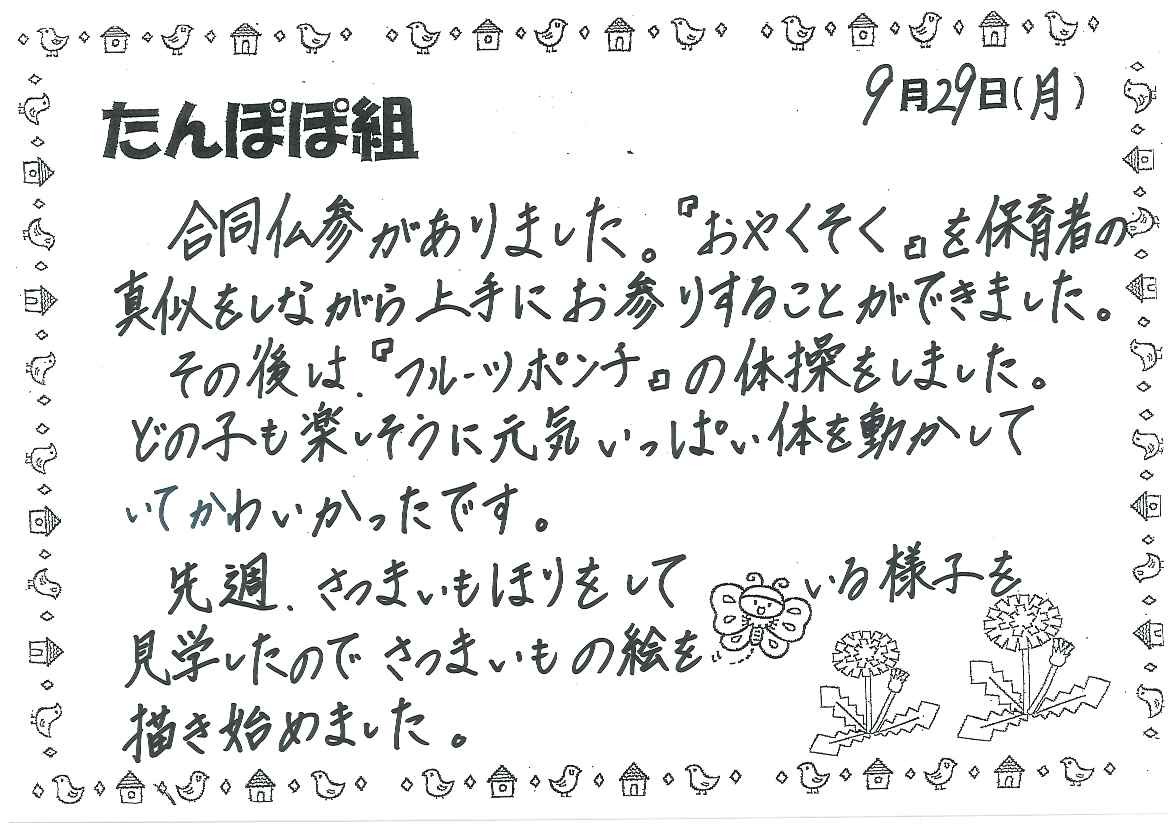 9月29日(月)
たんぽぽ組
合同仏参がありました。『おやくそく』を保育者の
真似をしながら上手にお参りすることができました。
その後は、『フルーツポンチ』の体操をしました。
どの子も楽しそうに元気いっぱい体を動かして
いてかわいかったです。
先週、さつまいもほりをして いる様子を
見学したのでさつまいもの絵を
描き始めました。